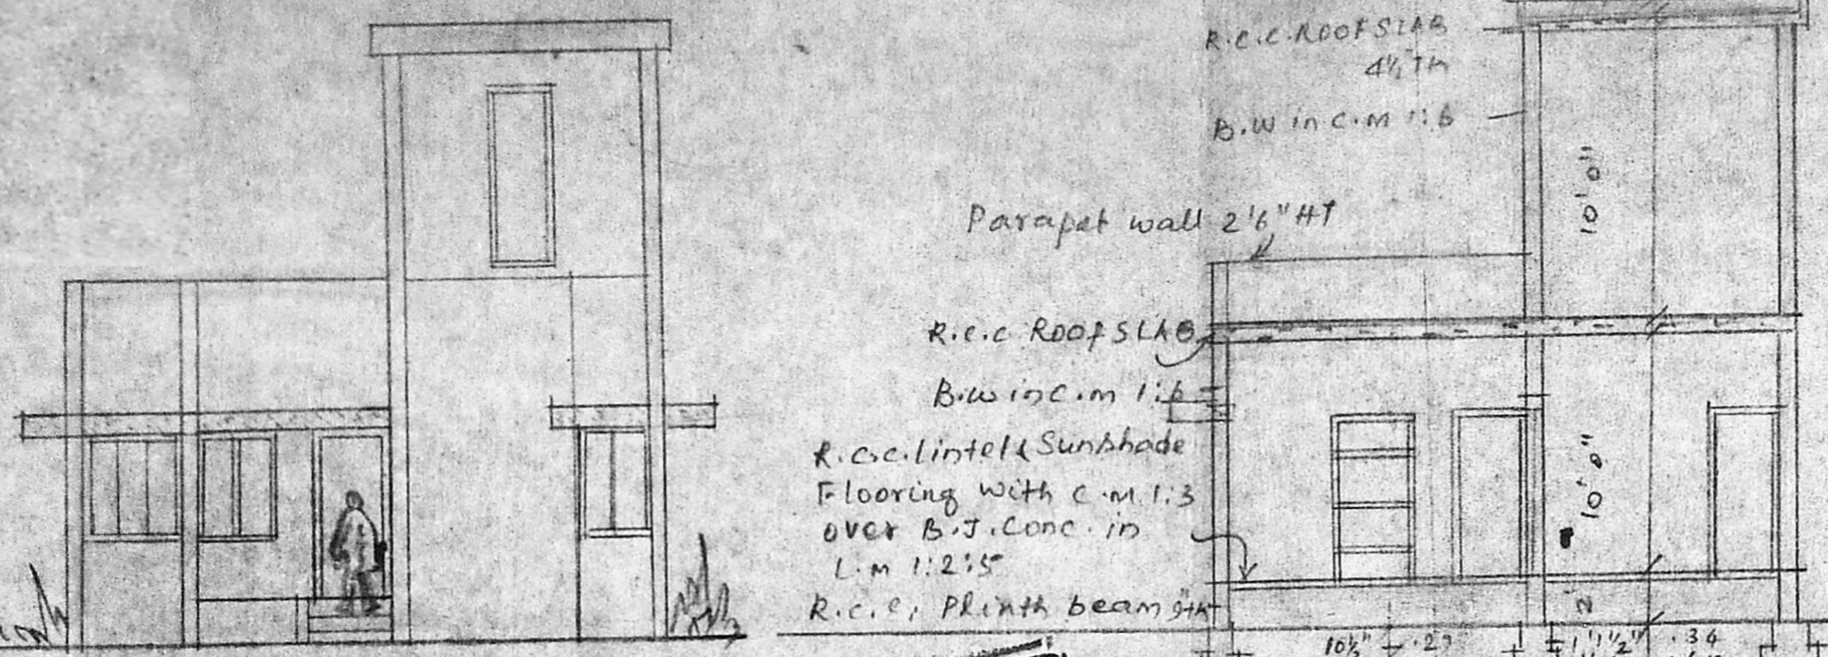 R.C.C. ROOF SLAB
4½" TH
B.W in C.M 1:6
10'0"
Parapet wall 2'6" HT
R.C.C ROOF SLAB
B.W in C.M 1:6
R.C.C. lintel & Sunshade
Flooring with C.M 1:3
over B.J. Conc. in
L.M 1:2:5
10'0"
R.C.C. Plinth beam 9" TH
2'
10½"